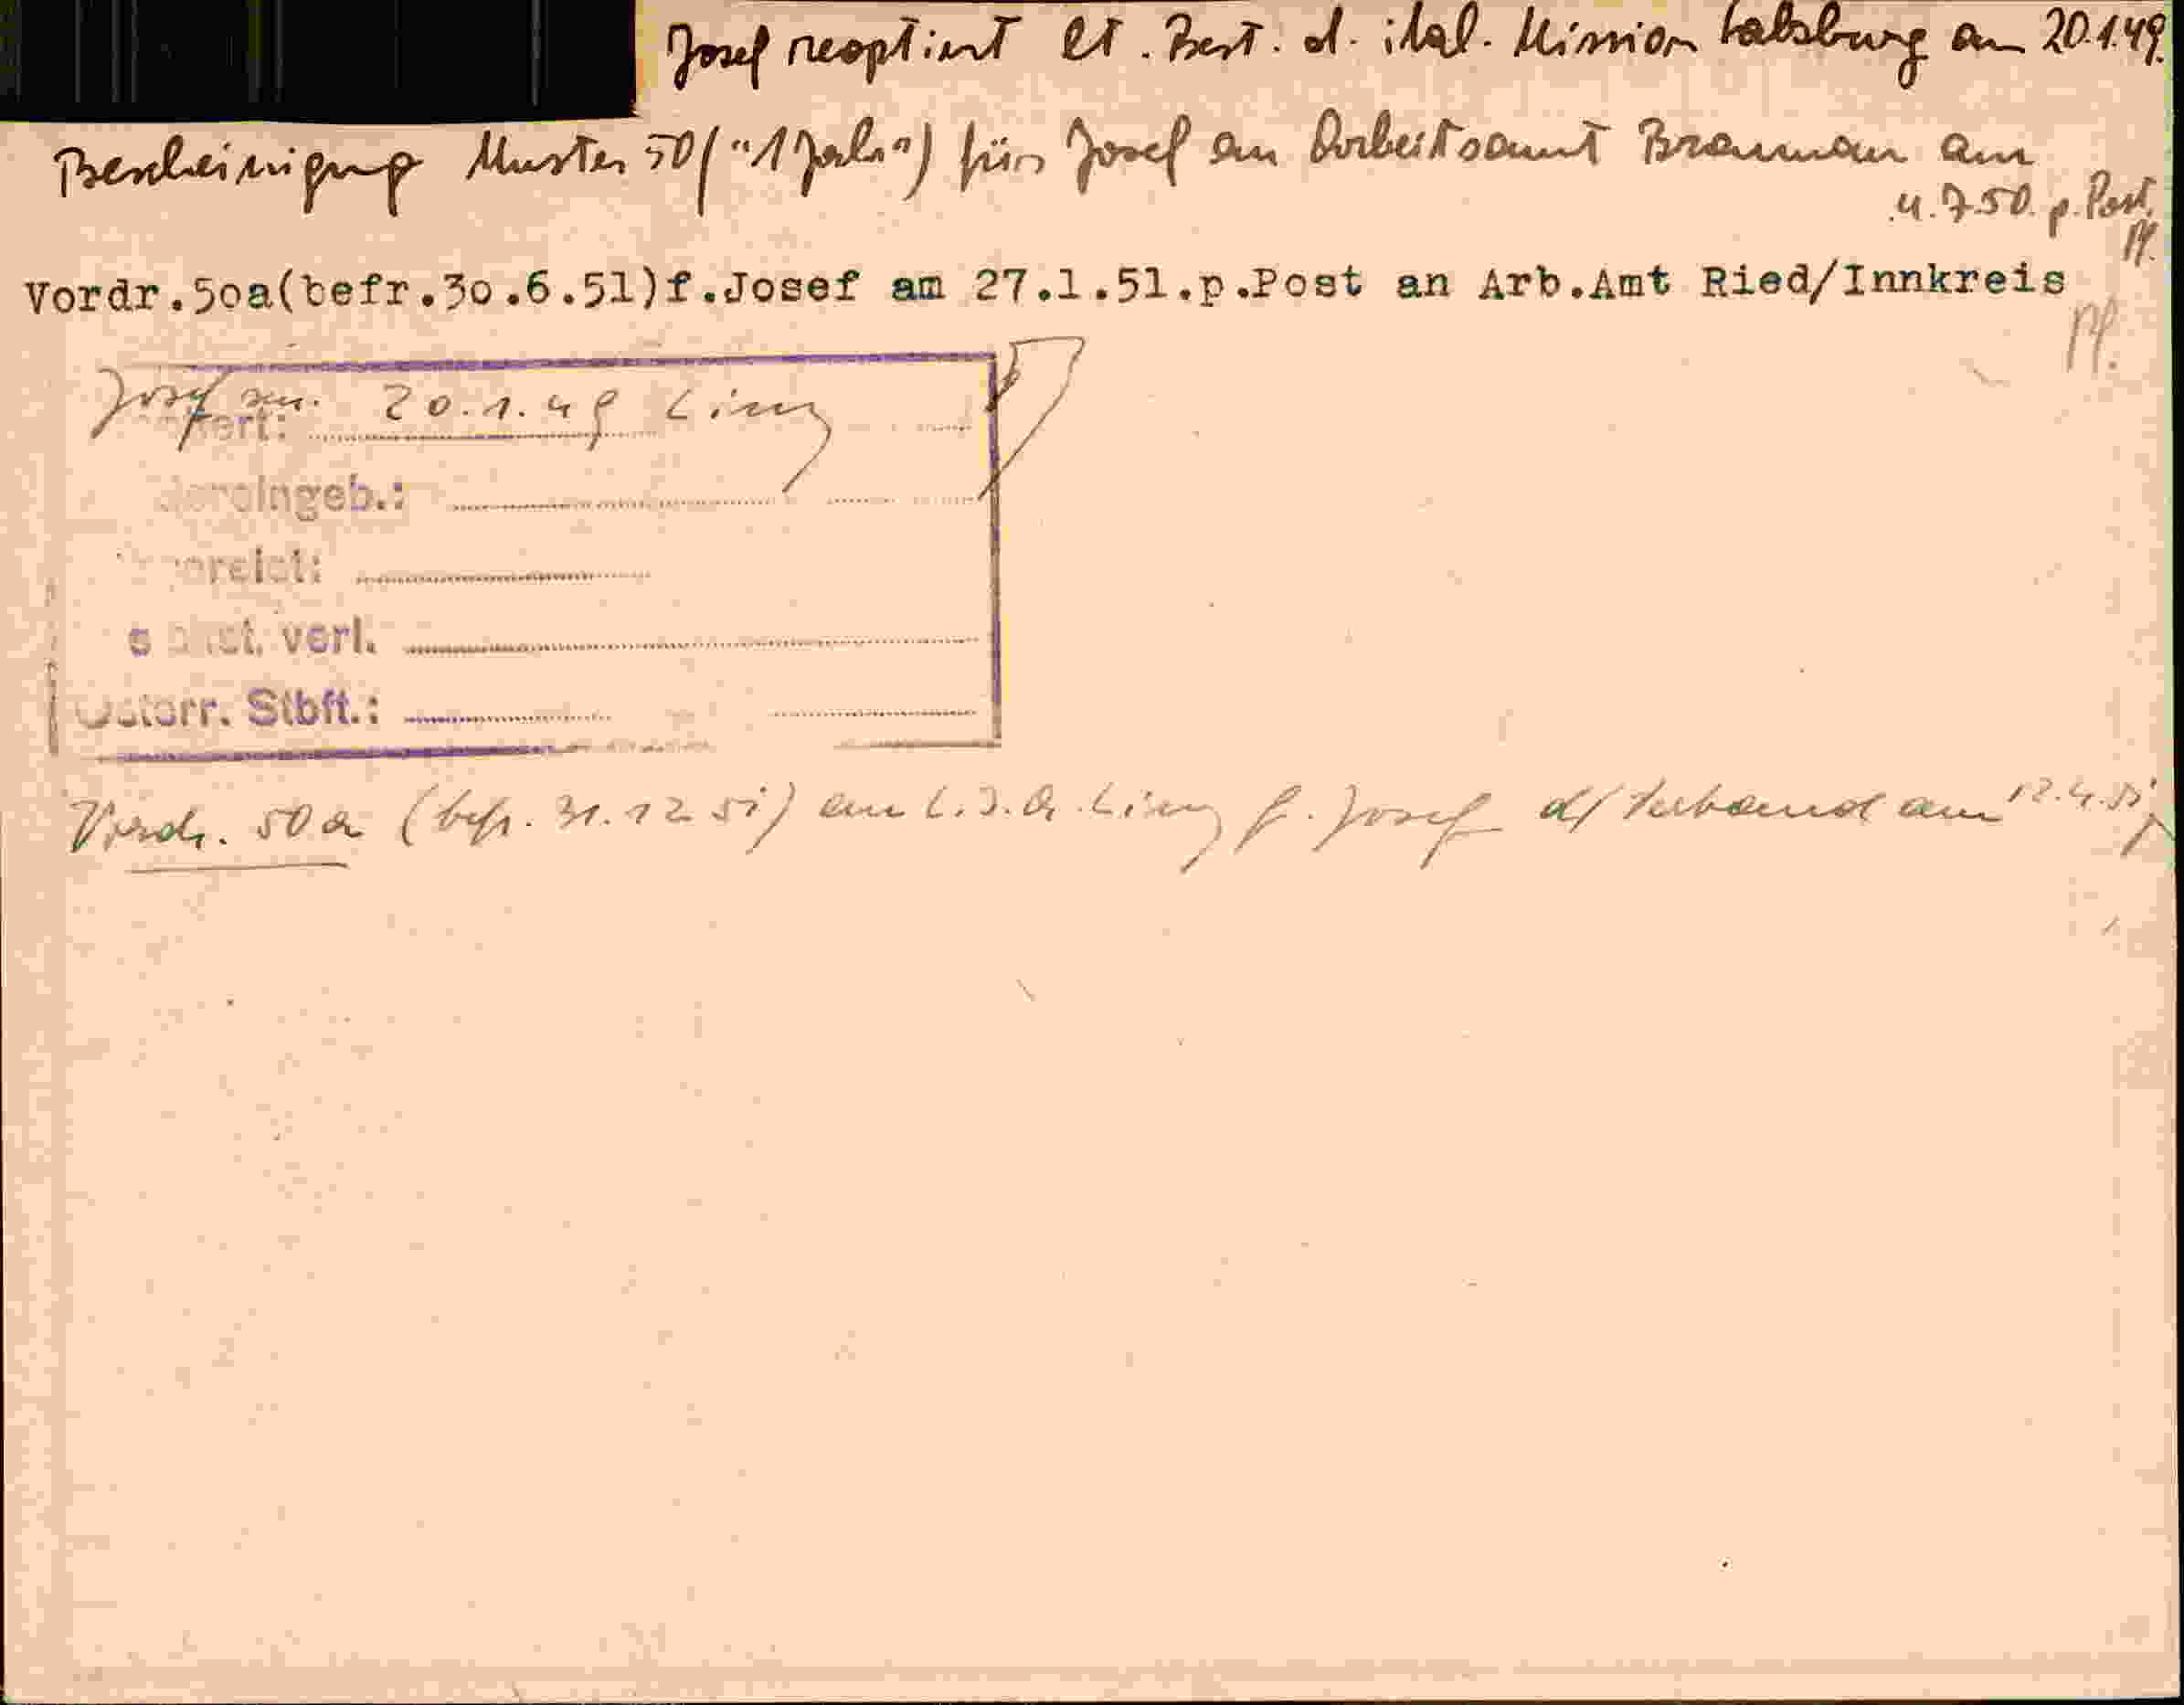 Josef reoptiert lt. Best. d. ital. Mission Salzburg am 20.1.49.
Bescheinigung Muster 50 ("1 Jahr") für Josef an Arbeitsamt Braunau am
4.7.50. p. Post.
Pf.
Vordr.5oa(befr.3o.6.51)f.Josef am 27.1.51.p.Post an Arb.Amt Ried/Innkreis
Pf.
Josef sen. 20.1.49 Linz
Österr. Stbft.:
Vordr. 50a (befr. 31.12.51) an L.A.A. Linz f. Josef d/ Verband am 12.4.51